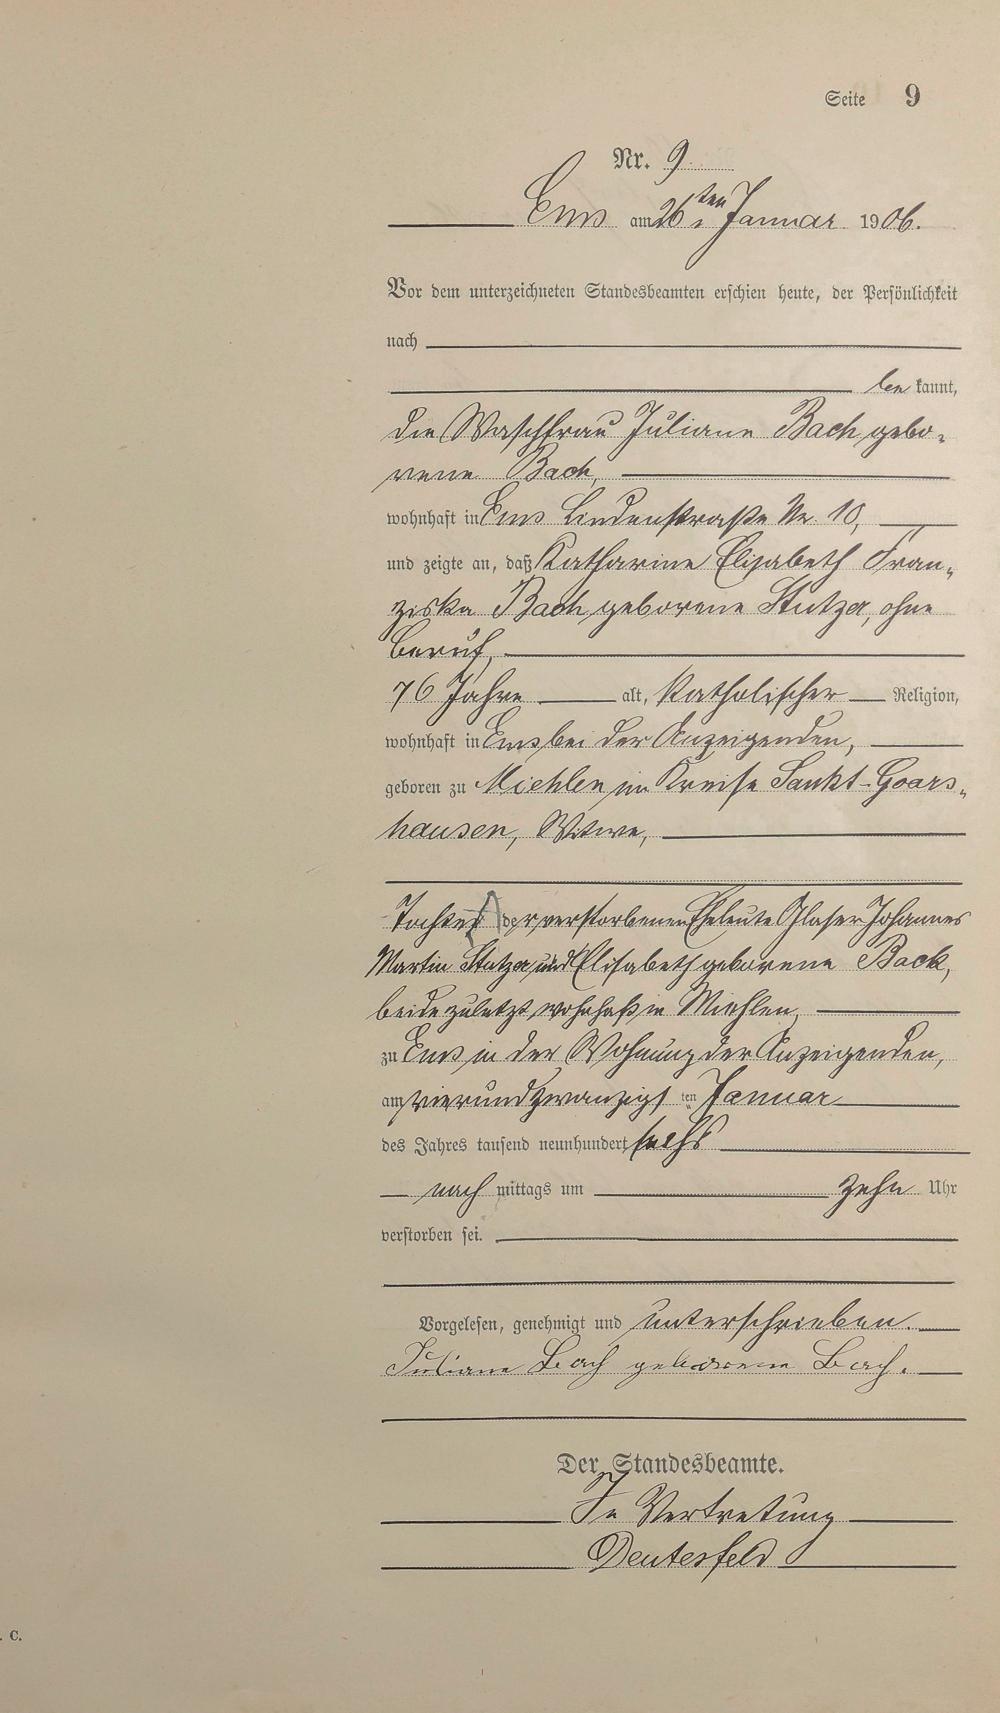 Seite 9
Nr. 9
Ems am 26ten Januar 1906.
Vor dem unterzeichneten Standesbeamten erschien heute, der Persönlichkeit
nach
bekannt,
die Waschfrau Juliane Bach gebo-
rene Bach,
wohnhaft in Ems Lindenstraße Nr. 10,
und zeigte an, daß Katharine Elisabeth Fran-
ziska Bach geborene Stutzer, ohne
Beruf,
76 Jahre alt, katholischer Religion,
wohnhaft in Ems bei der Anzeigenden,
geboren zu Miehlen im Kreise Sankt-Goars-
hausen, Witwe,
Tochter der verstorbenen Eheleute Glaser Johannes
Martin Stutzer und Elisabeth geborene Back,
beide zuletzt wohnhaft in Miehlen
zu Ems in der Wohnung der Anzeigenden,
am vierundzwanzigsten Januar
des Jahres tausend neunhundert sechs
nach mittags um zehn Uhr
verstorben sei.
Vorgelesen, genehmigt und unterschrieben.
Juliane Bach geborene Bach.
Der Standesbeamte.
In Vertretung
Deutesfeld
. C.